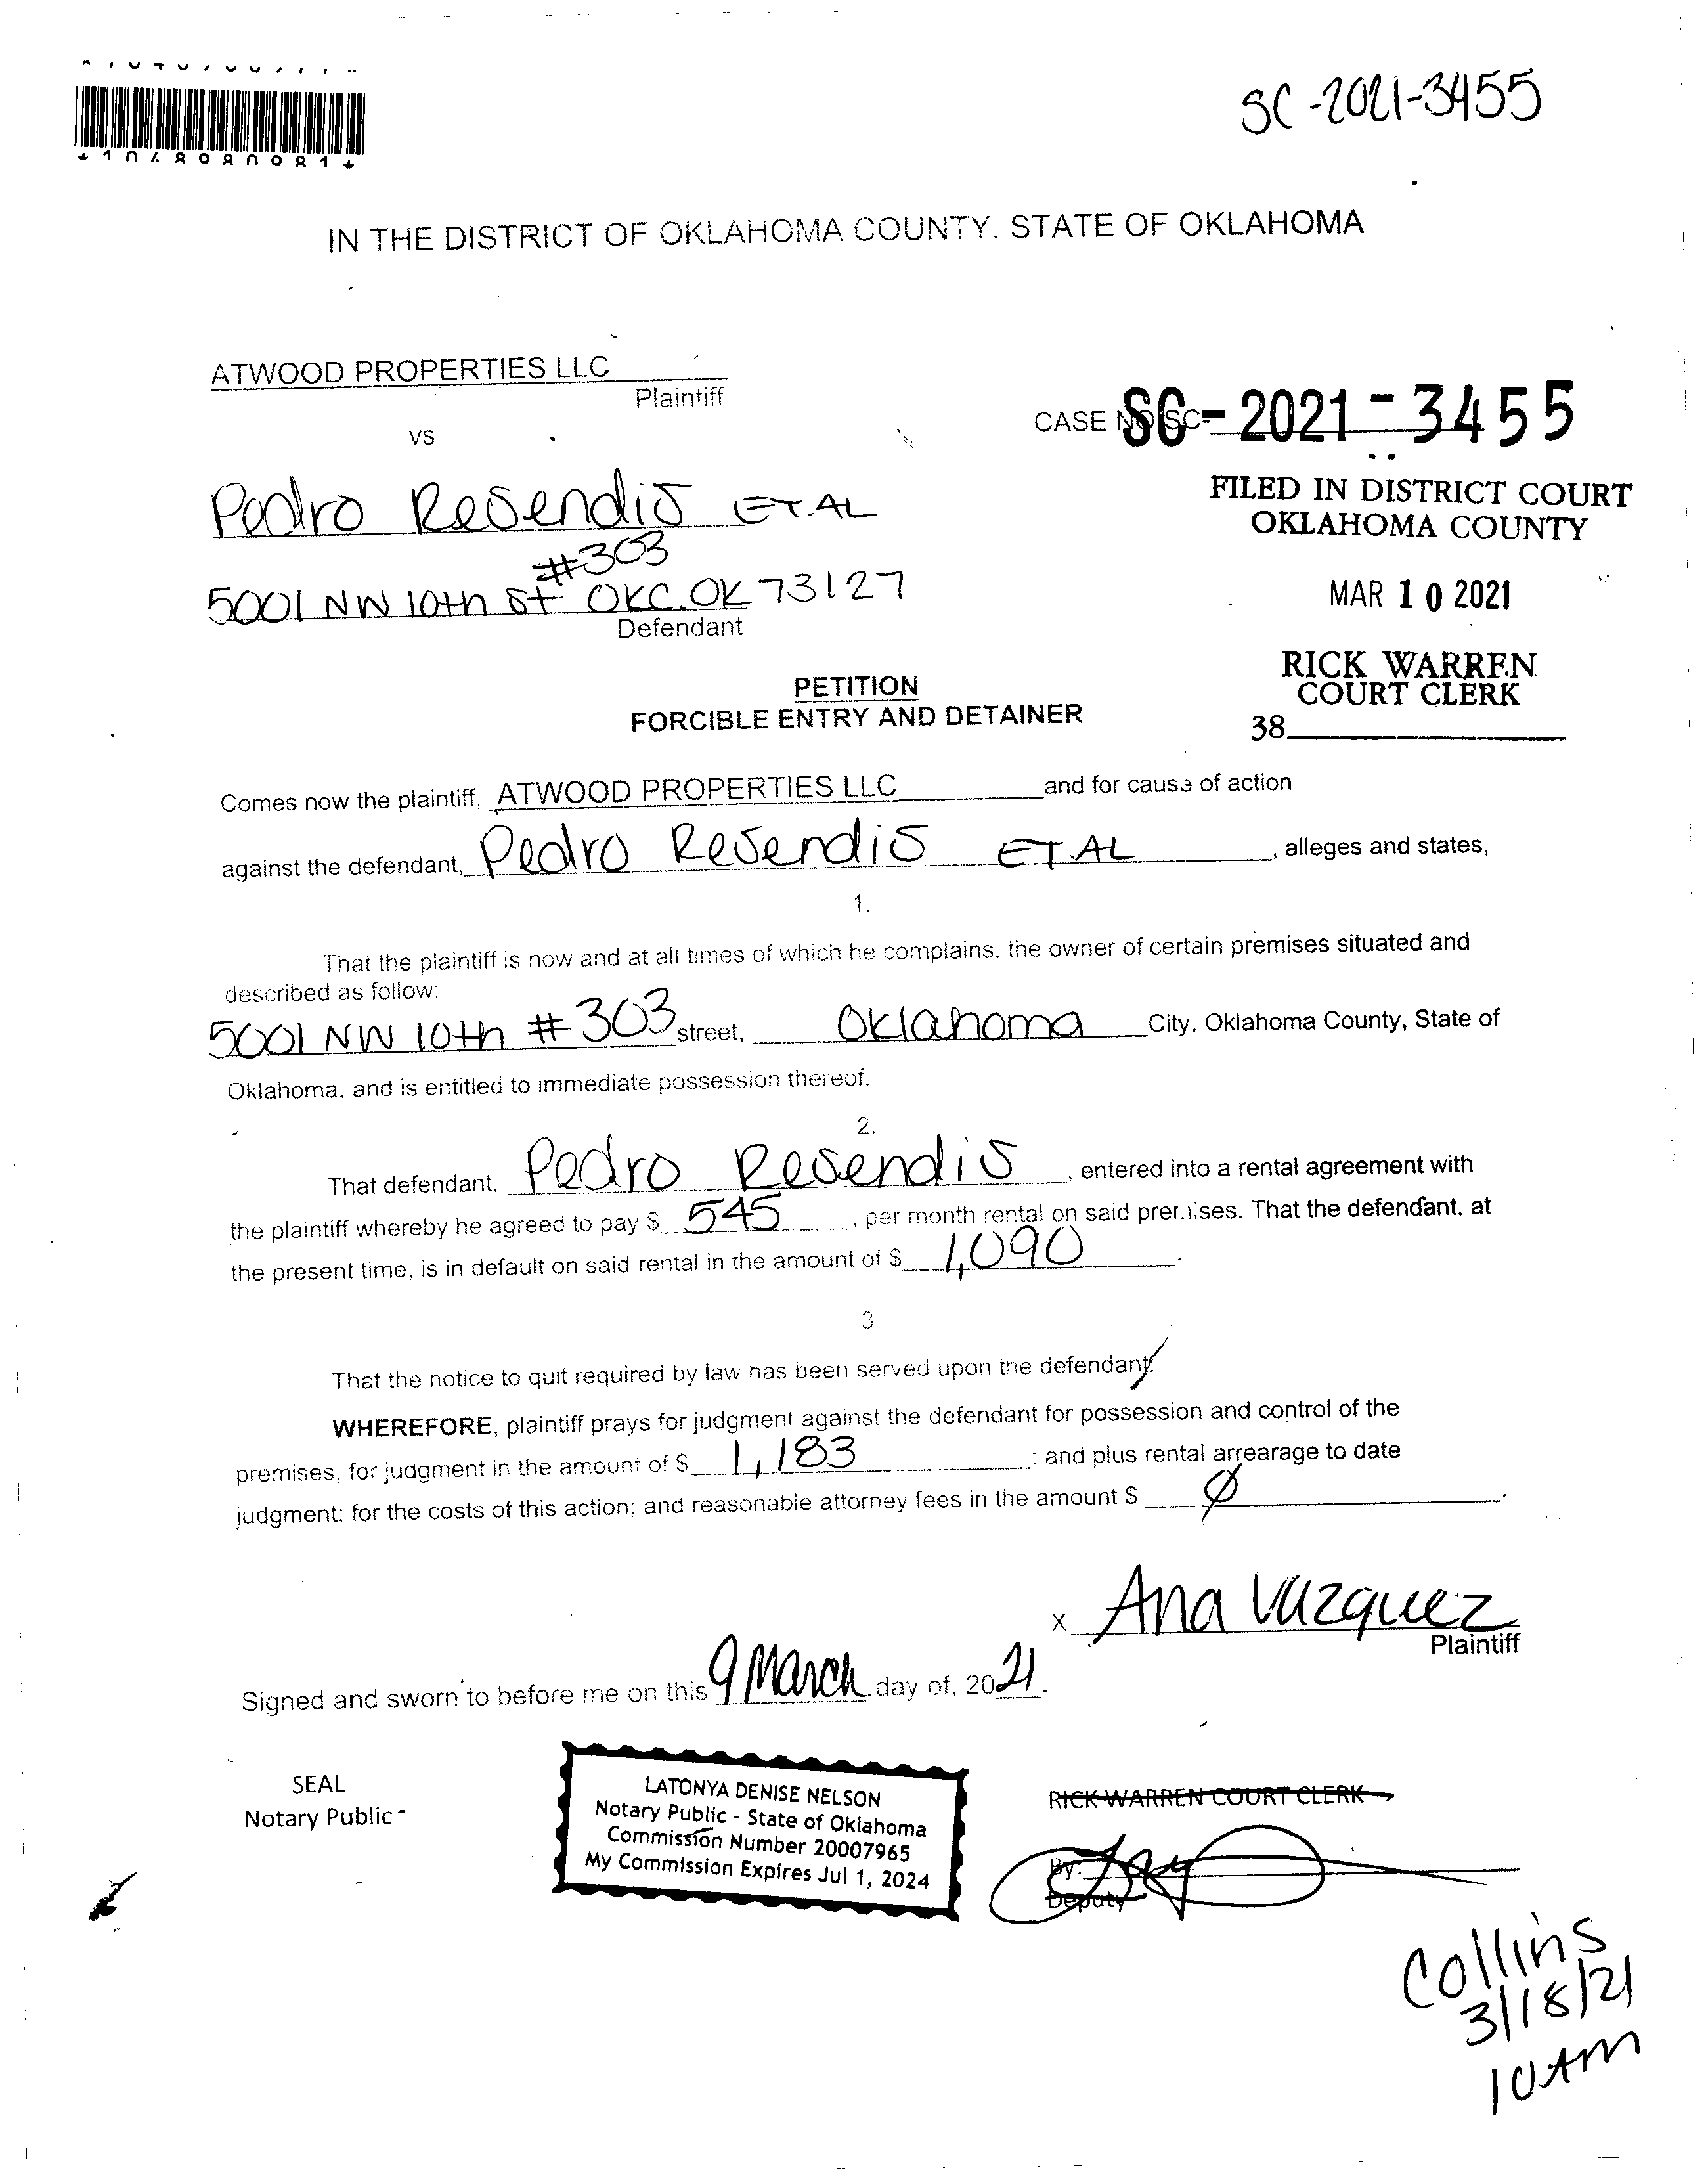 SC-2021-3455
IN THE DISTRICT OF OKLAHOMA COUNTY, STATE OF OKLAHOMA
ATWOOD PROPERTIES LLC
Plaintiff
vs
CASE NO SC-
SC-2021-3455
Pedro Resendis ET.AL
#303
5001 NW 10th St OKC.OK 73127
Defendant
FILED IN DISTRICT COURT
OKLAHOMA COUNTY
MAR 10 2021
RICK WARREN
COURT CLERK
38
PETITION
FORCIBLE ENTRY AND DETAINER
Comes now the plaintiff, ATWOOD PROPERTIES LLC and for cause of action
against the defendant, Pedro Resendis ET.AL, alleges and states,
1.
That the plaintiff is now and at all times of which he complains, the owner of certain premises situated and
described as follow:
5001 NW 10th #303 street, Oklahoma City, Oklahoma County, State of
Oklahoma, and is entitled to immediate possession thereof.
2.
That defendant, Pedro Resendis, entered into a rental agreement with
the plaintiff whereby he agreed to pay $ 545, per month rental on said premises. That the defendant, at
the present time, is in default on said rental in the amount of $ 1,090.
3.
That the notice to quit required by law has been served upon the defendant.
WHEREFORE, plaintiff prays for judgment against the defendant for possession and control of the
premises; for judgment in the amount of $ 1,183; and plus rental arrearage to date
judgment; for the costs of this action; and reasonable attorney fees in the amount $ Ø.
x Ana Vazquez
Plaintiff
Signed and sworn to before me on this 9 March day of, 2021.
SEAL
Notary Public
LATONYA DENISE NELSON
Notary Public - State of Oklahoma
Commission Number 20007965
My Commission Expires Jul 1, 2024
RICK WARREN COURT CLERK
By:
Deputy
Collins
3/18/21
10 AM